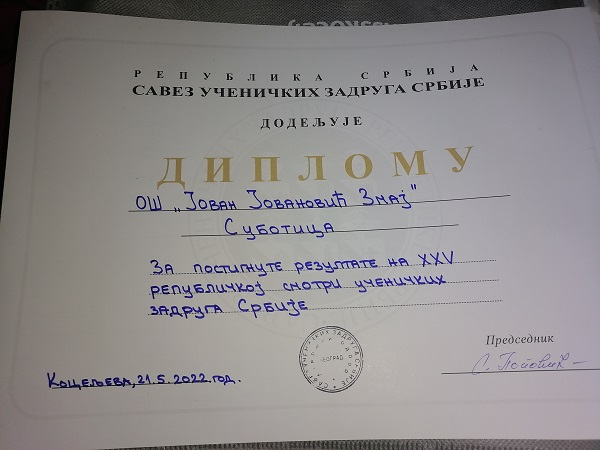 РЕПУБЛИКА СРБИЈА
САВЕЗ УЧЕНИЧКИХ ЗАДРУГА СРБИЈЕ
ДОДЕЉУЈЕ
ДИПЛОМУ
ОШ „Јован Јовановић Змај"
Суботица
За постигнуте резултате на XXV
републичкој смотри ученичких
задруга Србије
Председник
Коцељева, 21.5.2022.год.